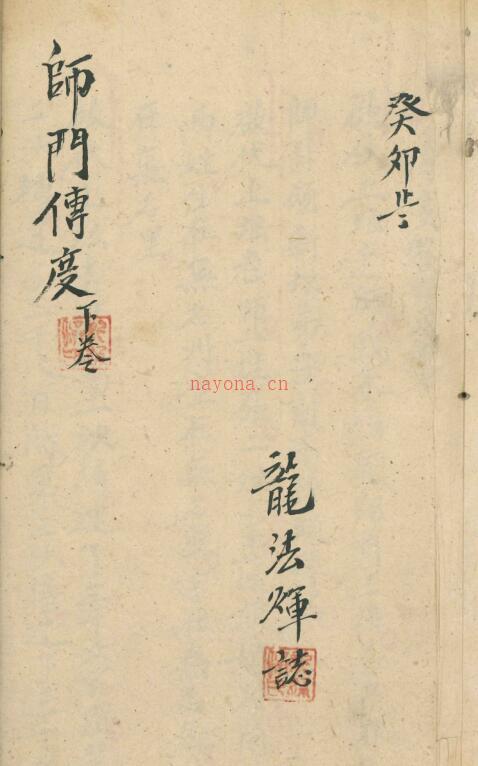 癸卯歲
龍法輝誌
師門傳度下卷
nayona.cn